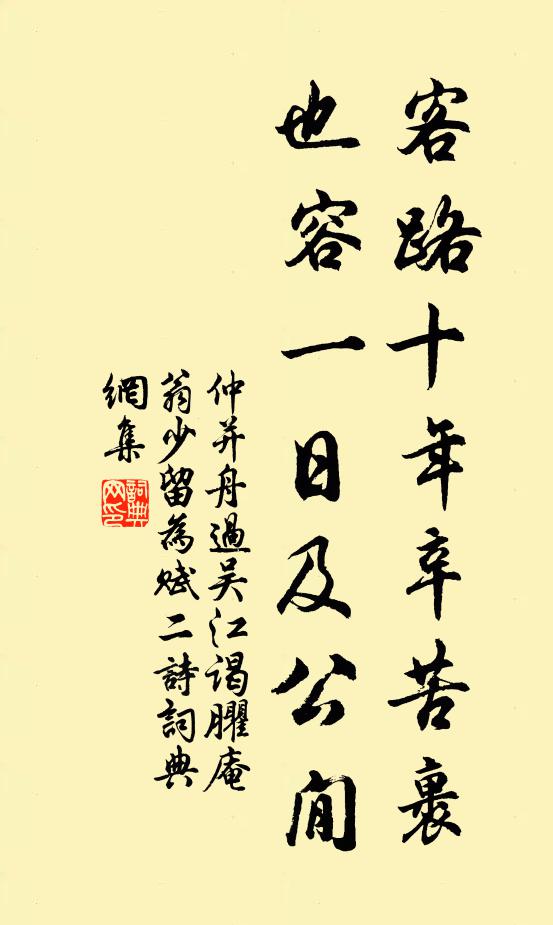 客路十年辛苦裏
也容一日及公閒
仲并舟過吴江謁臞庵
翁少留為賦二詩詞典
網集
詞典網印